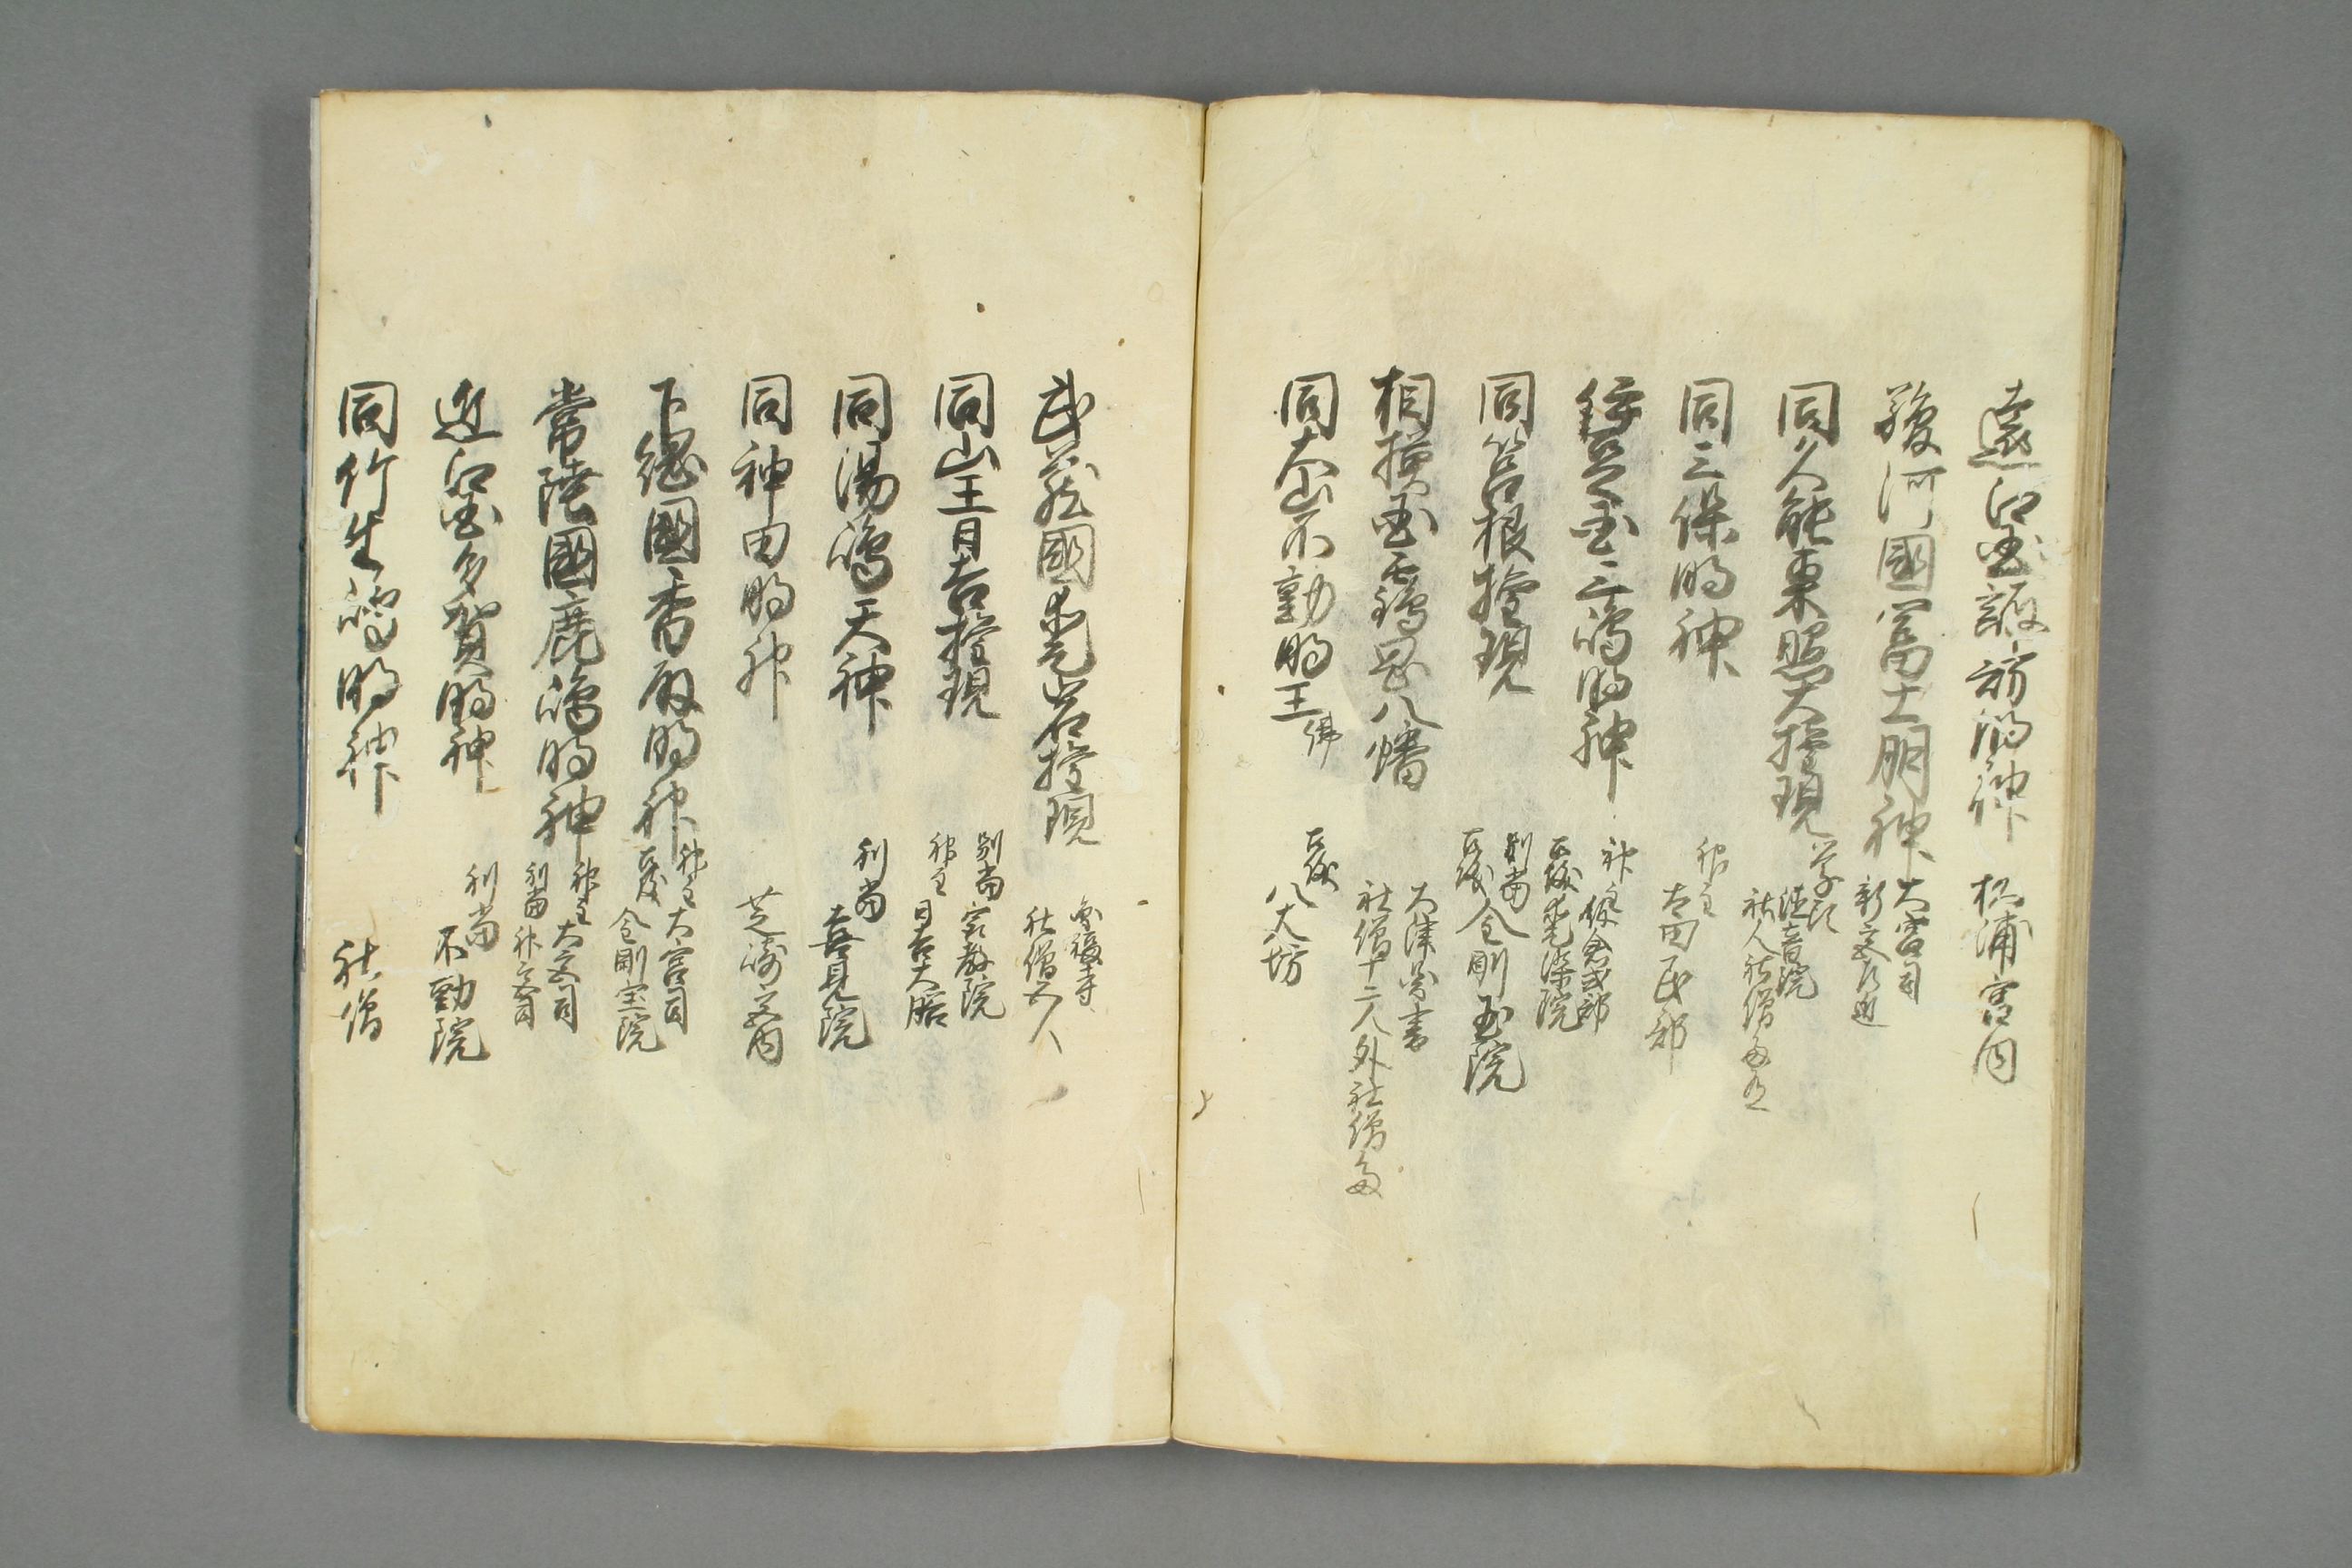 遠江国諏訪明神 杉浦宮内
駿河國富士明神 大宮司
同久能東照大権現 学頭
徳音院
社人社僧多有
同三保明神 神主
太田民部
伊豆国三嶋明神 神主
同筥根権現 別当
金剛王院
相模国鶴岡八幡 大津
社僧十二人外社僧多
同大山不動明王 佛
八大坊
武蔵國愛宕権現 社僧六人
同山王日吉権現 別当
神主
同湯嶋天神 別当
喜見院
同神田明神 芝崎宮内
下総國香取明神 神主
大宮司
金剛宝院
常陸國鹿嶋明神 神主
大宮司
別当 神宮司
近江国多賀明神 別当
不動院
同竹生嶋明神 社僧